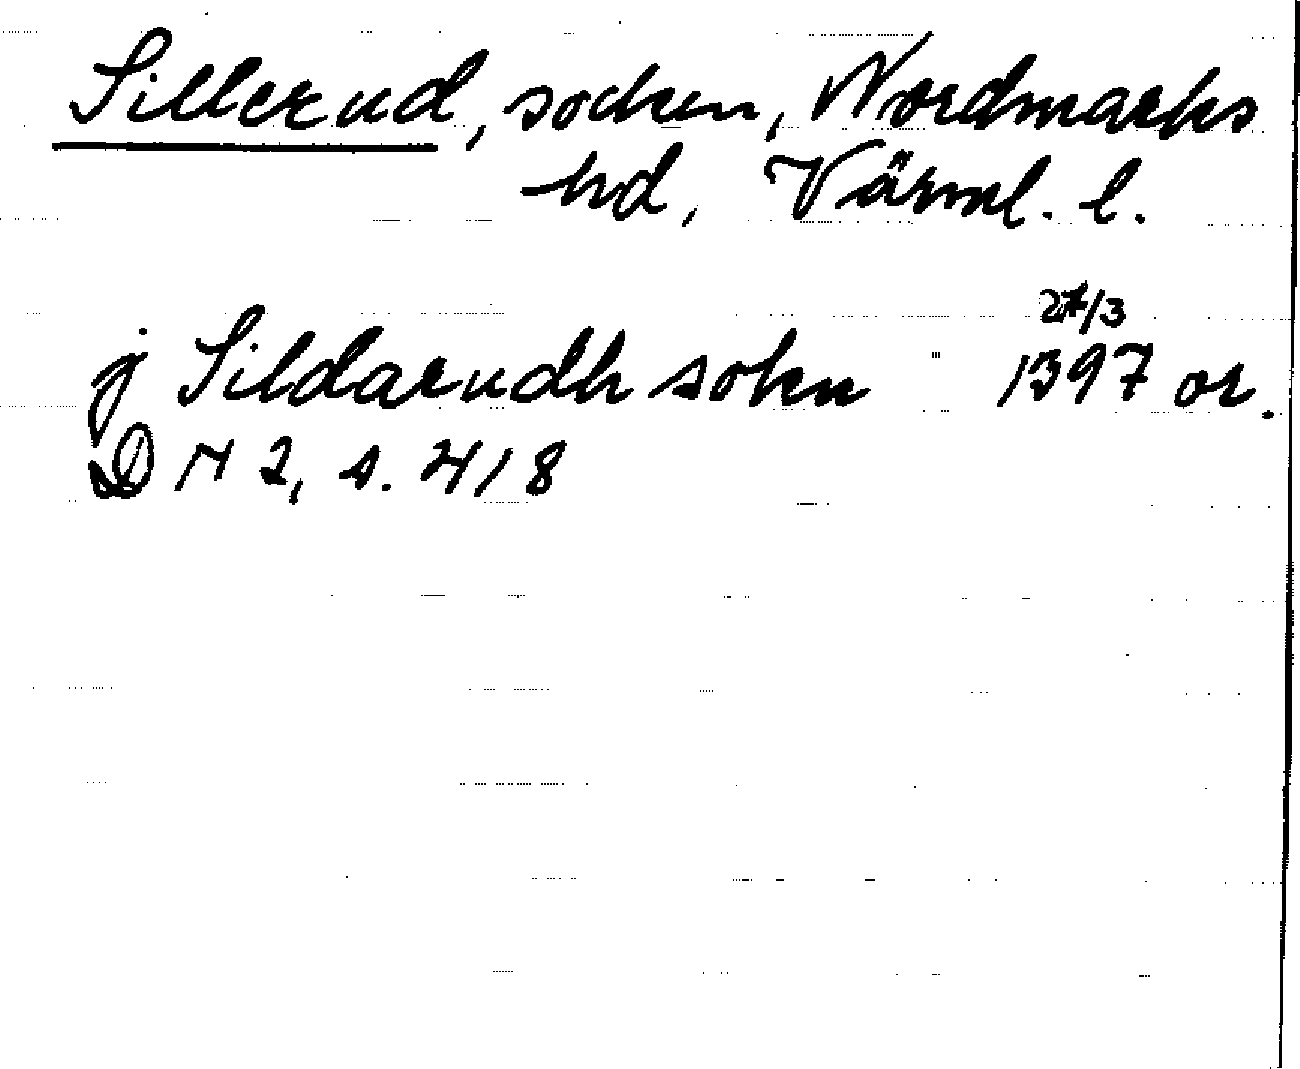 Sillerud, socken, Nordmarks
hd, Värml. l.
27/3
j Sildarudh sokn 1397 or.
DN 2, s. 418